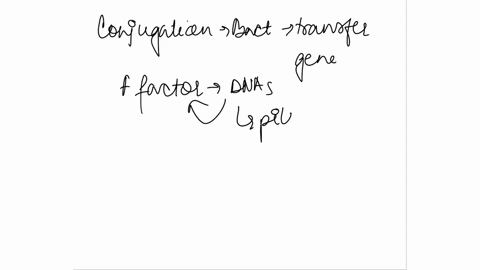 Conjugation → Bact → transfer
gene
f factor → DNAs
↳ pil